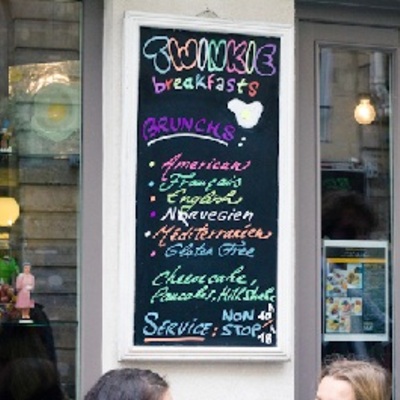 TWINKIE
breakfasts
BRUNCHS:
• American
• Français
• English
• Norvegien
• Méditerranien
• Gluten Free
Cheesecake,
Pancakes, Milkshake
SERVICE: NON
STOP